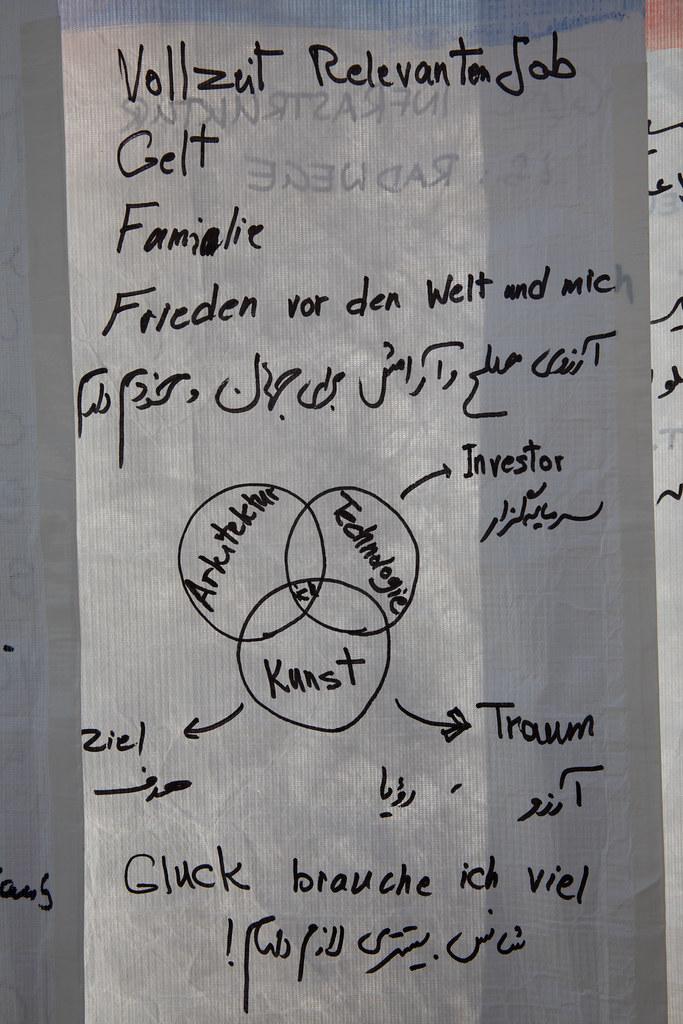 Vollzeit Relevanten Job
Gelt
Familie
Frieden vor den Welt und mich
آرزوی صلح و آرامش برای جهان و خودم دارم
Investor
سرمایه‌گزار
Arkitektur
Technologie
ich
Kunst
Ziel
هدف
Traum
آرزو - رؤیا
Gluck brauche ich viel
شانس بیشتری لازم دارم!
INFRASTRUKTUR
RADWEGE